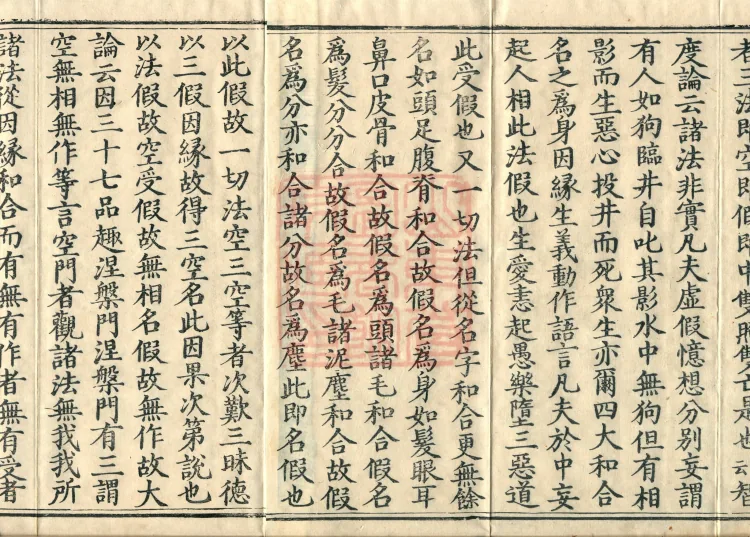 者三法即空即假即中雙照雙亡是也云智
度論云諸法非實凡夫虛假憶想分別妄謂
有人如狗臨井自吠其影水中無狗但有相
影而生惡心投井而死眾生亦爾四大和合
名之為身因緣生義動作語言凡夫於中妄
起人相此法假也生愛恚起愚樂墮三惡道
此受假也又一切法但從名字和合更無餘
名如頭足腹脊和合故假名為身如髮眼耳
鼻口皮骨和合故假名為頭諸毛和合假名
為髮分分合故假名為毛諸泥塵和合故假
名為分亦和合諸分故名為塵此即名假也
以此假故一切法空三空等者次歎三昧德
以三假因緣故得三空名此因果次第說也
以法假故空受假故無相名假故無作故大
論云因三十七品趣涅槃門涅槃門有三謂
空無相無作等言空門者觀諸法無我我所
諸法從因緣和合而有無有作者無有受者